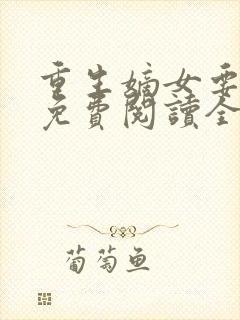 重生嫡女要
免費閱讀全
葡萄魚